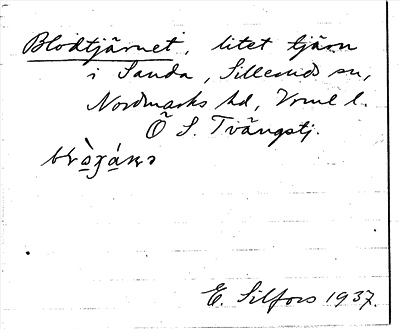 Blodtjärnet, litet tjärn
i Sanda, Silleruds sn,
Nordmarks hd, Vrml l.
Ö S. Tvängstj.
E. Silfors 1937.